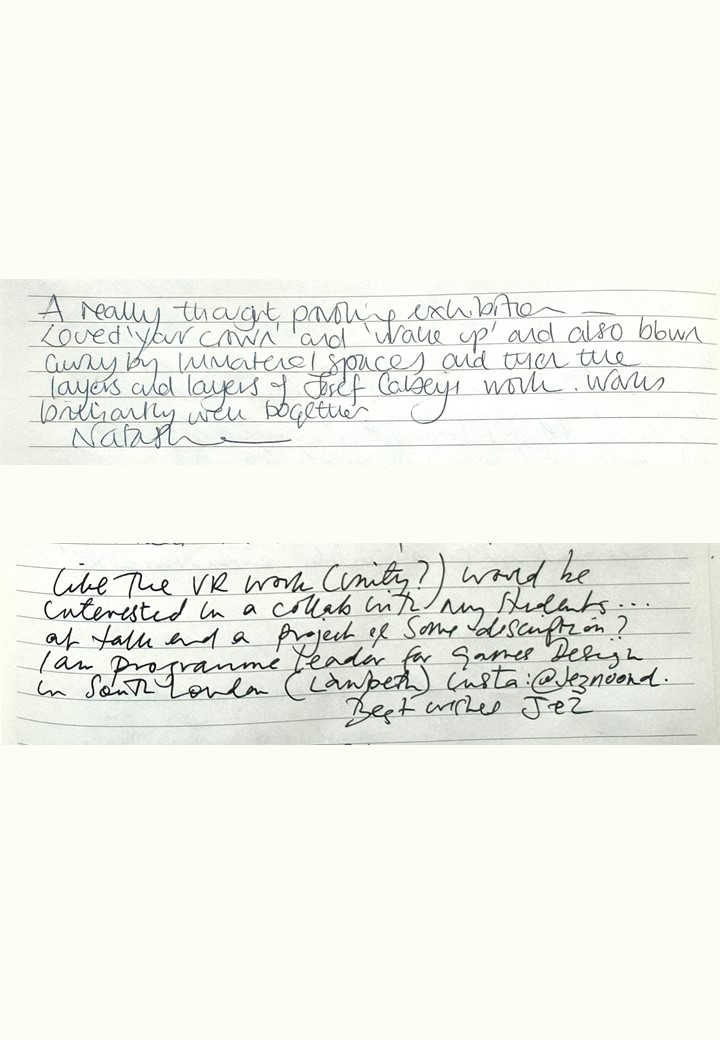 A really thought provoking exhibition
Loved 'your crown' and 'wake up' and also blown
away by Immaterial spaces and then the
layers and layers of Josef work. Works
brilliantly well together
Natash
Like The VR work (Unity?) would be
interested in a collab with my students...
at talk end a project of Some description?
I am programme leader for Games Design
in South London (Lambeth) insta:
Best wishes Jez